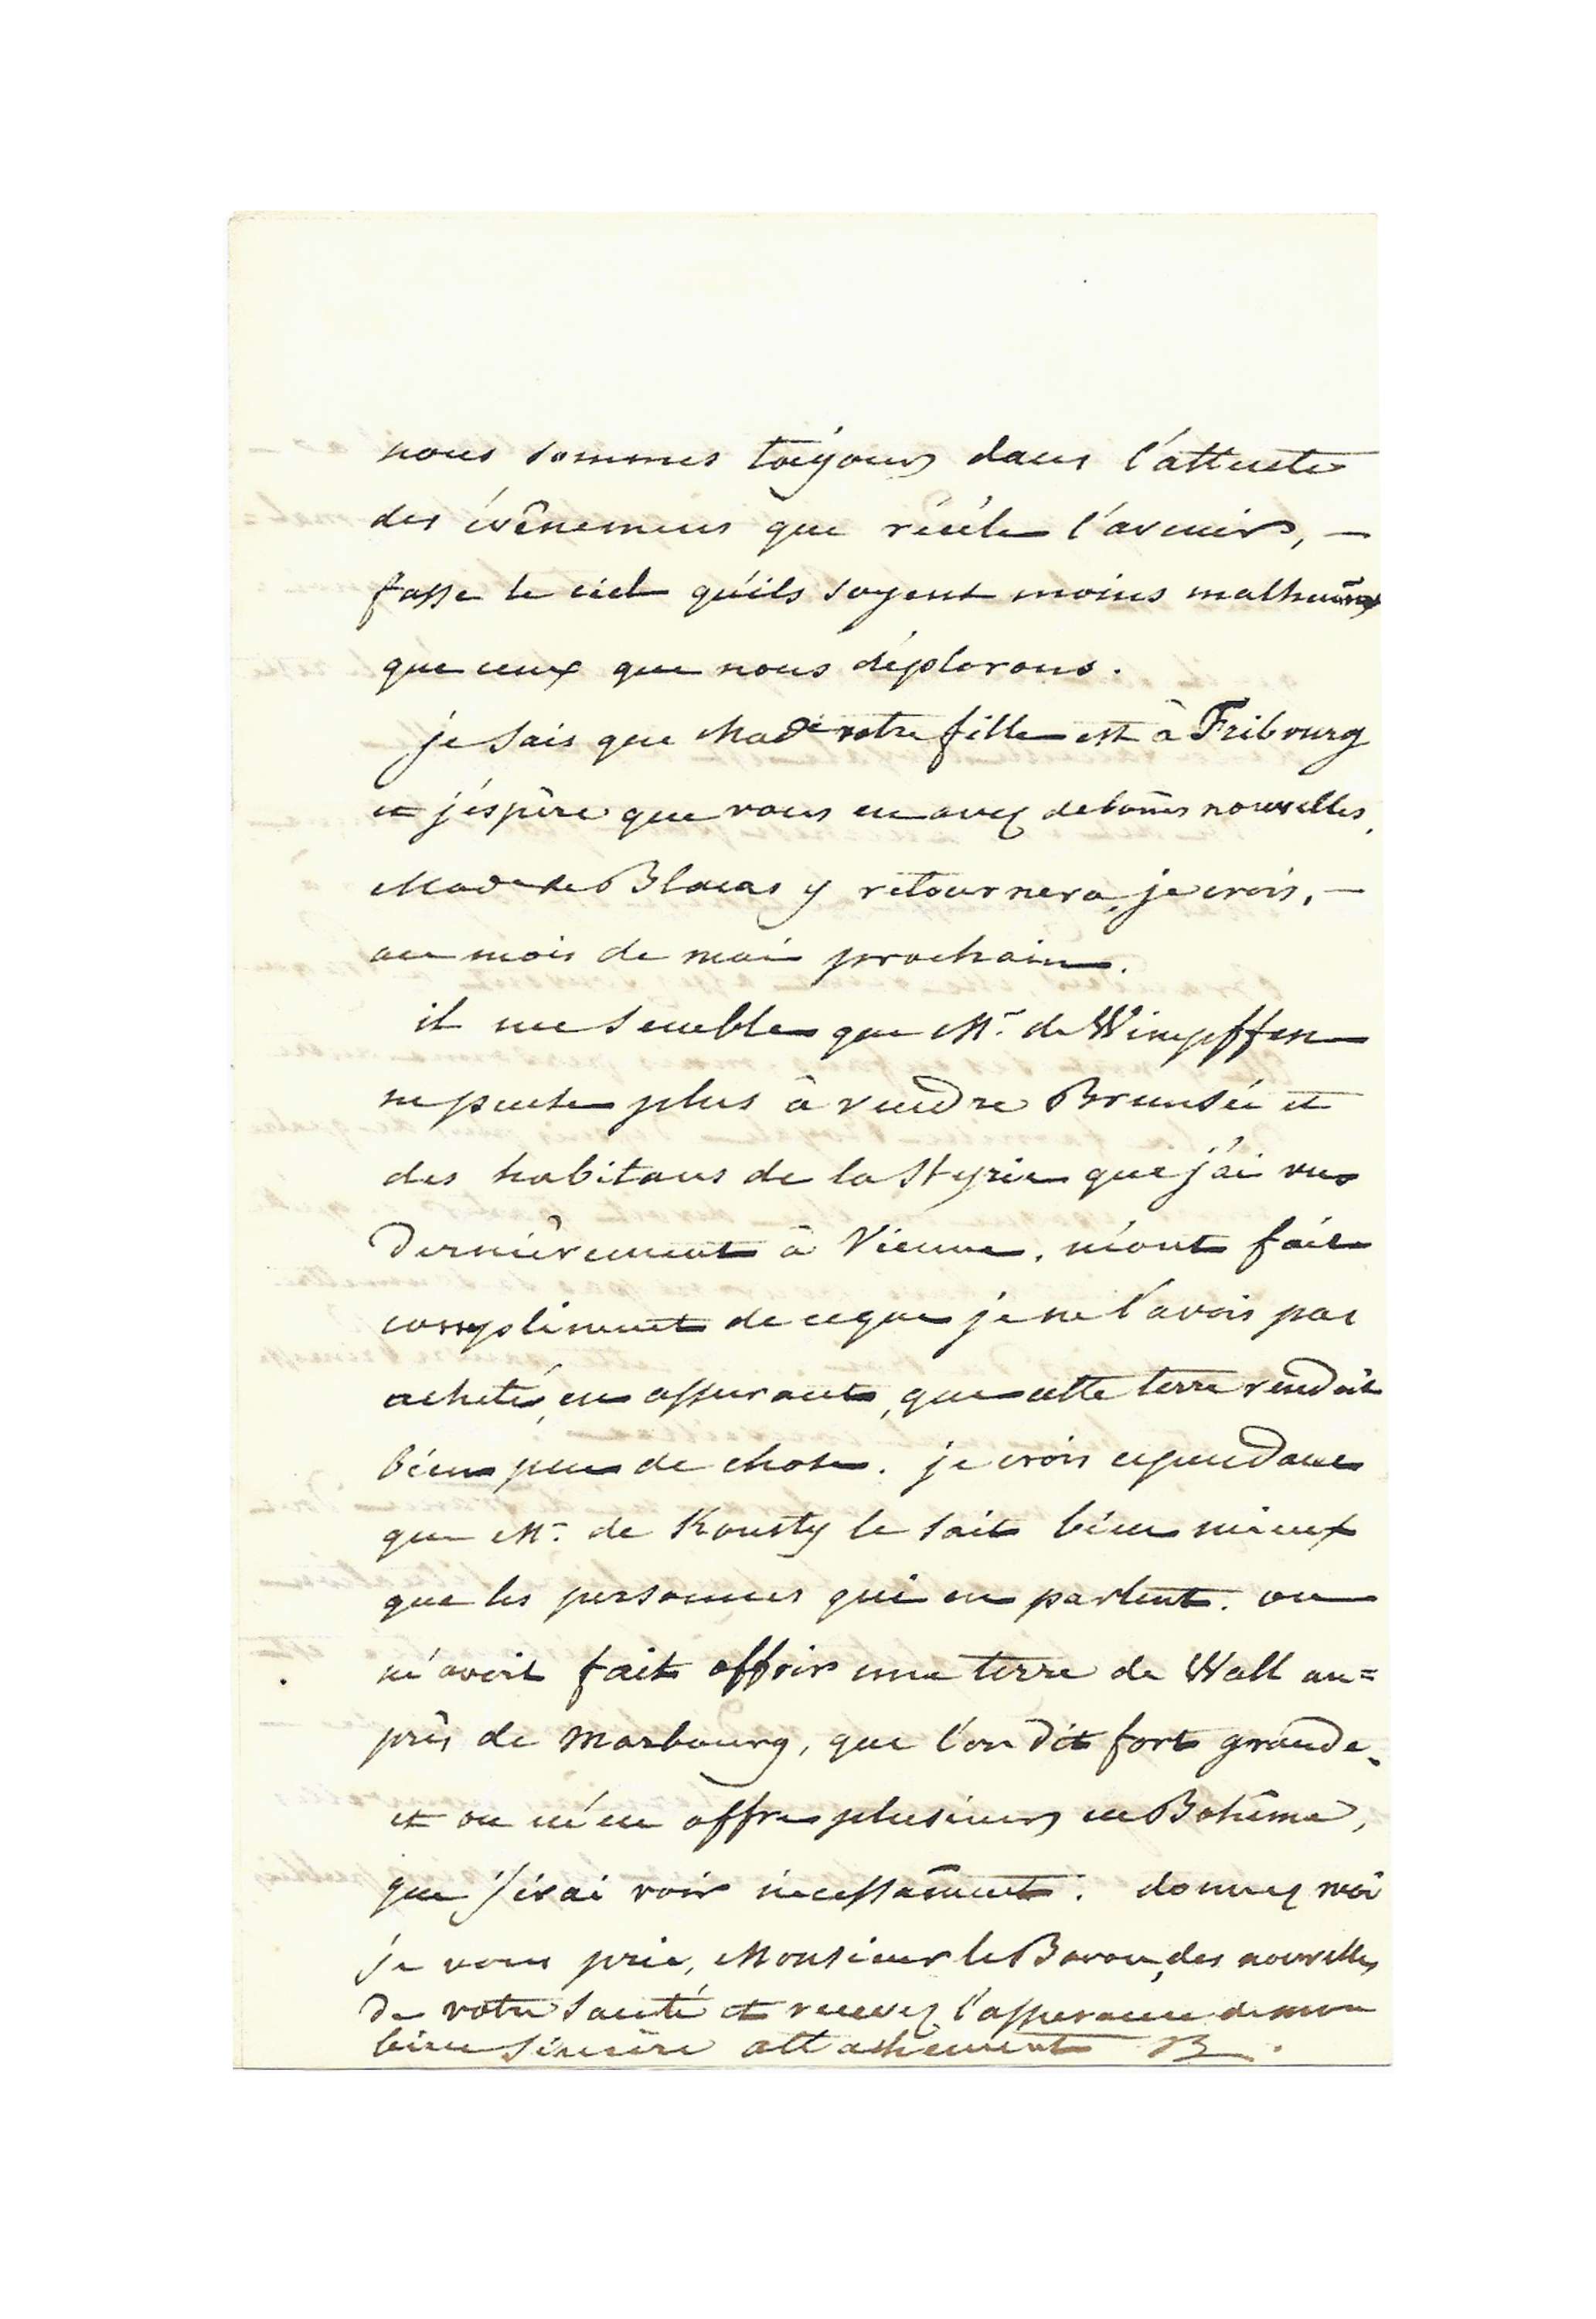 nous sommes toujours dans l'attente
des évênemens que récéle l'avenir, —
fasse le ciel qu'ils soyent moins malheureux
que ceux que nous déplorons.
je sais que Mad.e votre fille est à Fribourg
et j'éspère que vous en avez de bones nouvelles,
Mad.e de Blacas y retournera, je crois, —
au mois de mai prochain.
il me semble que Mr. de Wimpffen
ne pense plus à vendre Brunsée et
des habitans de la Styrie que j'ai vus
dernièrement à Vienne, m'ont fait
compliment de ce que je ne l'avois pas
acheté, en assurant, que cette terre rendoit
bien peu de chose. je crois cependant
que Mr. de le sait bien mieux
que les personnes qui en parlent. on
m'avoit fait offrir une terre de Wall au=
près de Marbourg, que l'on dit fort grande,
et on m'en offre plusieurs en Bohême,
que j'irai voir incessāment. donnez moi
je vous prie, Monsieur le Baron, des nouvelles
de votre santé, et recevez l'assurance de mon
bien sincère attachement B.